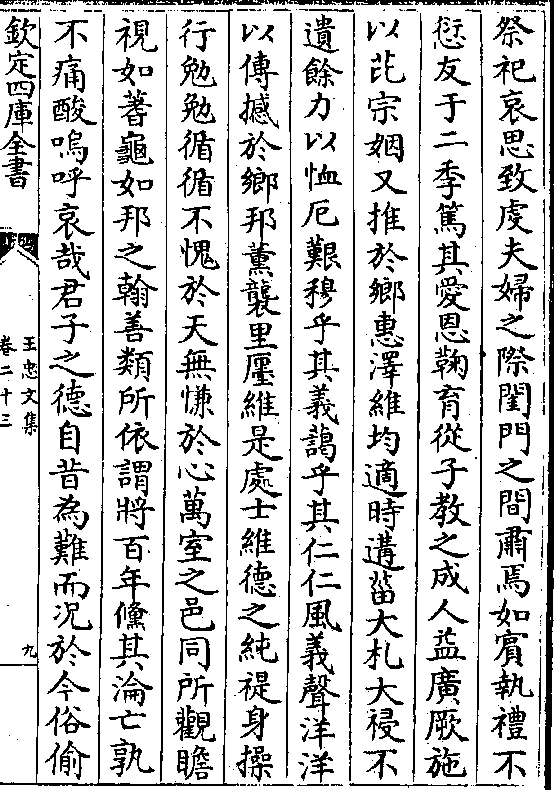 祭祀哀思致虔夫婦之際閨門之間肅焉如賓執禮不
愆友于二季篤其愛恩鞠育從子教之成人益廣厥施
以芘宗姻又推於鄉惠澤維均適時遘菑大札大祲不
遺餘力以恤厄艱穆乎其義藹乎其仁仁風義聲洋洋
以傳撼於鄉邦薰襲里㕓維是處士維德之純禔身操
行勉勉循循不愧於天無慊於心萬室之邑同所觀瞻
視如蓍龜如邦之翰善類所依謂將百年儵其淪亡孰
不痛酸嗚呼哀哉君子之德自昔為難而况於今俗偷
欽定四庫全書
王忠文集
卷二十三
九